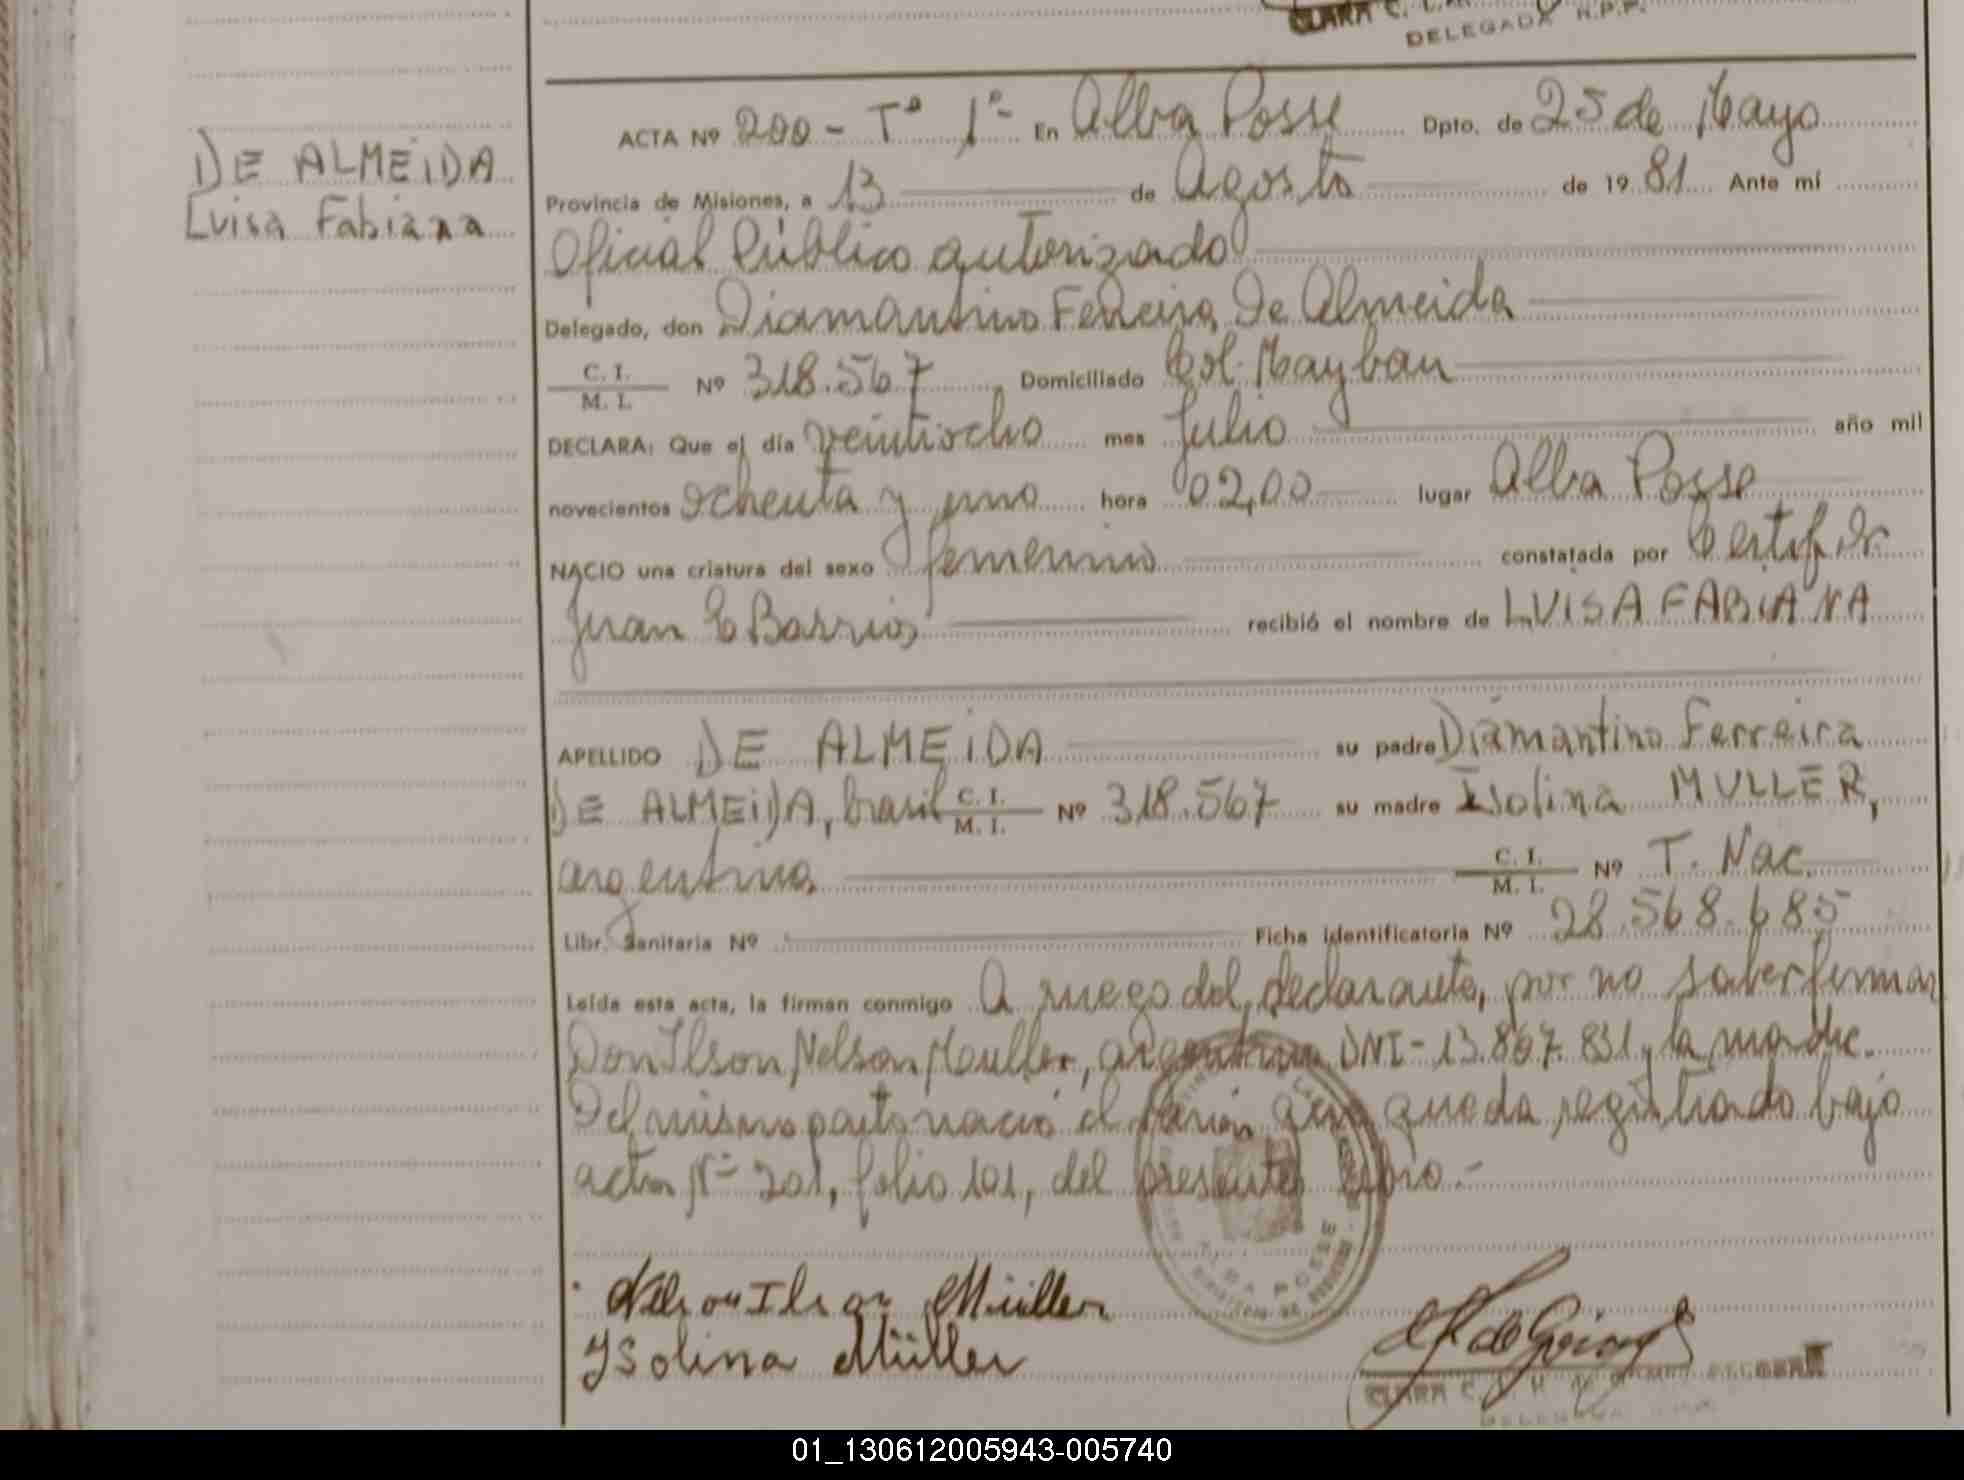 CLARA C.
DELEGADA R.P.P.
DE ALMEIDA
Luisa Fabiana
ACTA Nº 200 - Tº 1º- En Alba Posse Dpto. de 25 de Mayo
Provincia de Misiones, a 13 de Agosto de 1981 Ante mí
Oficial Público autorizado
Delegado, don Diamantino Ferreira De Almeida
C. I.
M. I. Nº 318.567 Domiciliado Col. Mayban
DECLARA: Que el día veintiocho mes Julio año mil
novecientos ochenta y uno hora 02,00 lugar Alba Posse
NACIO una criatura del sexo femenino constatada por Certif. Dr
Juan C Barrios recibió el nombre de LUISA FABIANA
APELLIDO DE ALMEIDA su padre Diamantino Ferreira
DE ALMEIDA, brasil C. I.
M. I. Nº 318.567 su madre Isolina MULLER,
argentina C. I.
M. I. Nº T. Nac.
Libr. Sanitaria Nº Ficha identificatoria Nº 28.568.685
Leída esta acta, la firman conmigo A ruego del declarante, por no saber firmar
Don Ilson Nelson Muller, argentino DNI-13.867.831, la madre.
Del mismo parto nació el varón que queda registrado bajo
acta Nº 201, folio 101, del presente libro.-
ALBA POSSE
Nelson Ilson Müller
Ysolina Müller
CLARA C.
01_130612005943-005740